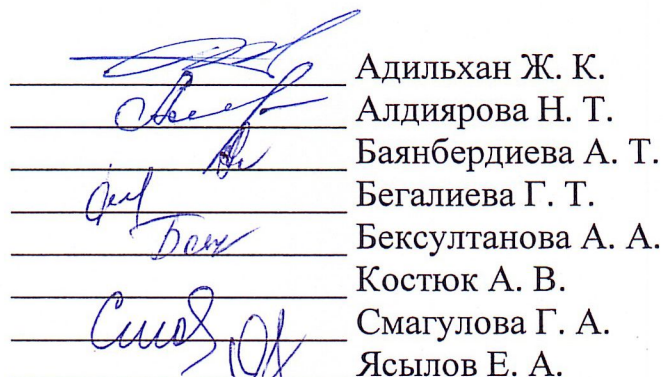 Адильхан Ж. К.
Алдиярова Н. Т.
Баянбердиева А. Т.
Бегалиева Г. Т.
Бексултанова А. А.
Костюк А. В.
Смагулова Г. А.
Ясылов Е. А.